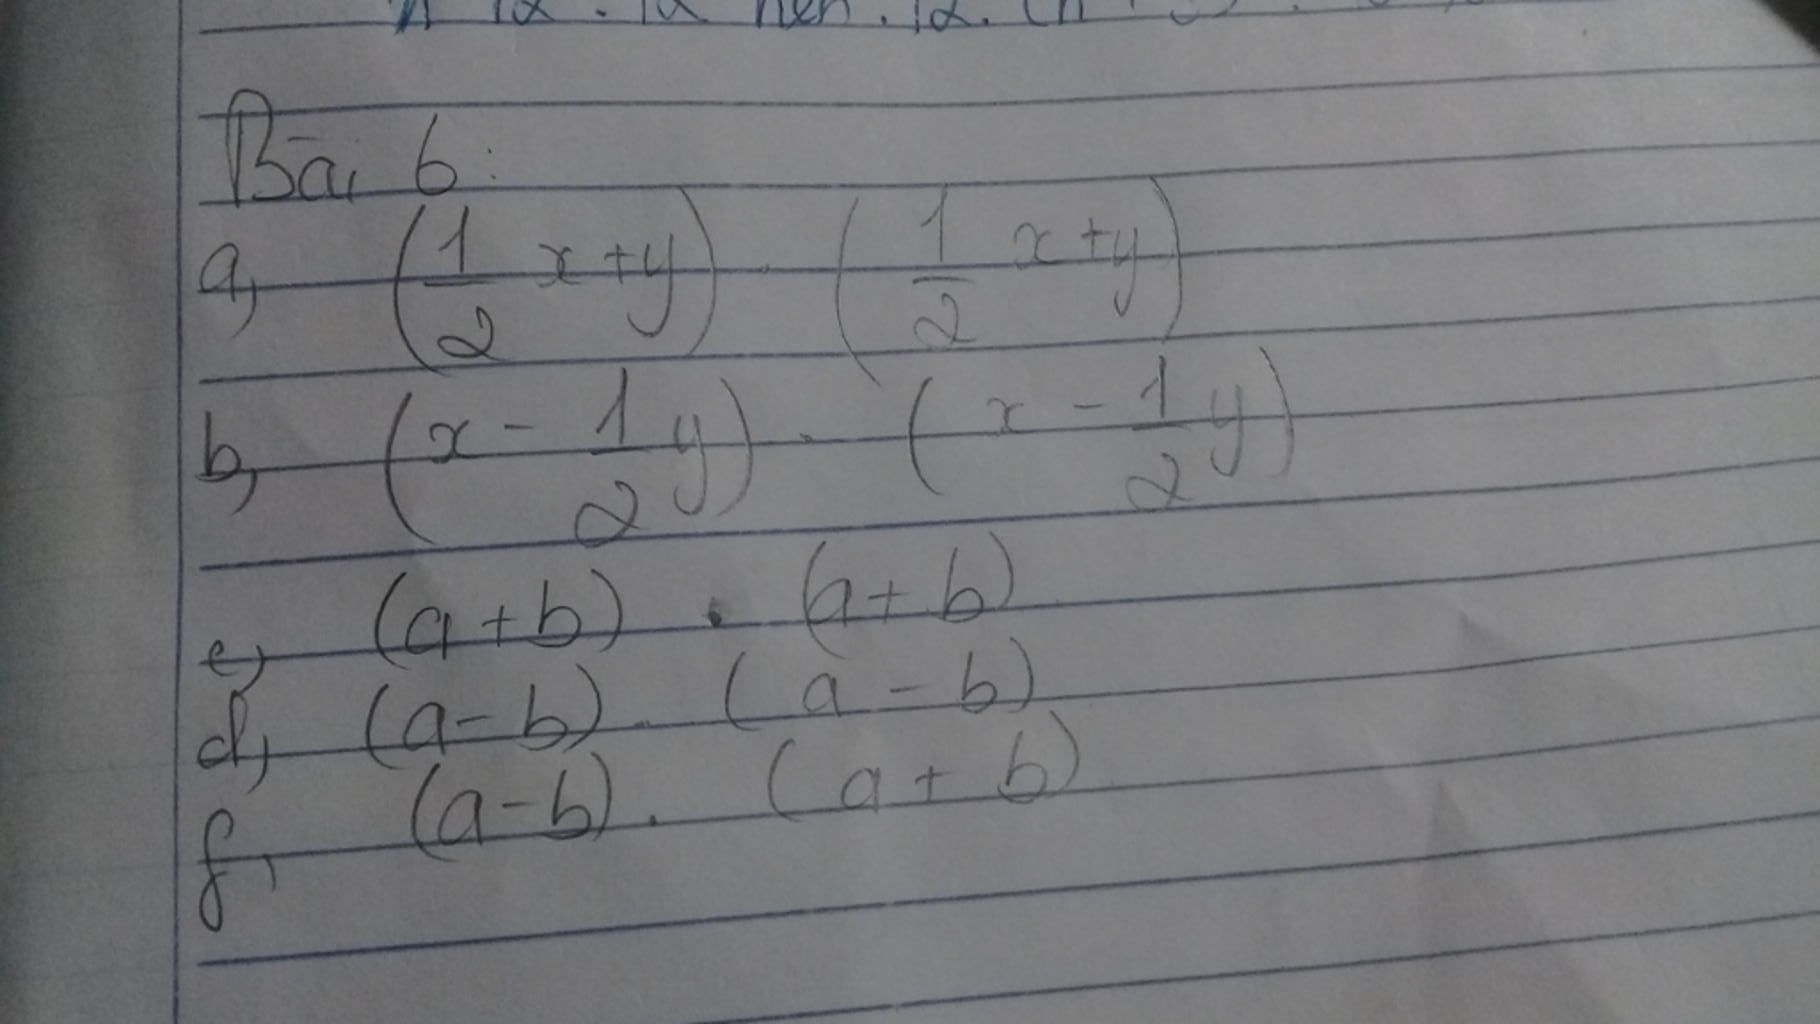 Bài 6:
a, (1/2 x+y) . (1/2 x+y)
b, (x - 1/2 y) . (x - 1/2 y)
e, (a+b) . (a+b)
d, (a-b) . (a-b)
f, (a-b) . (a+b)